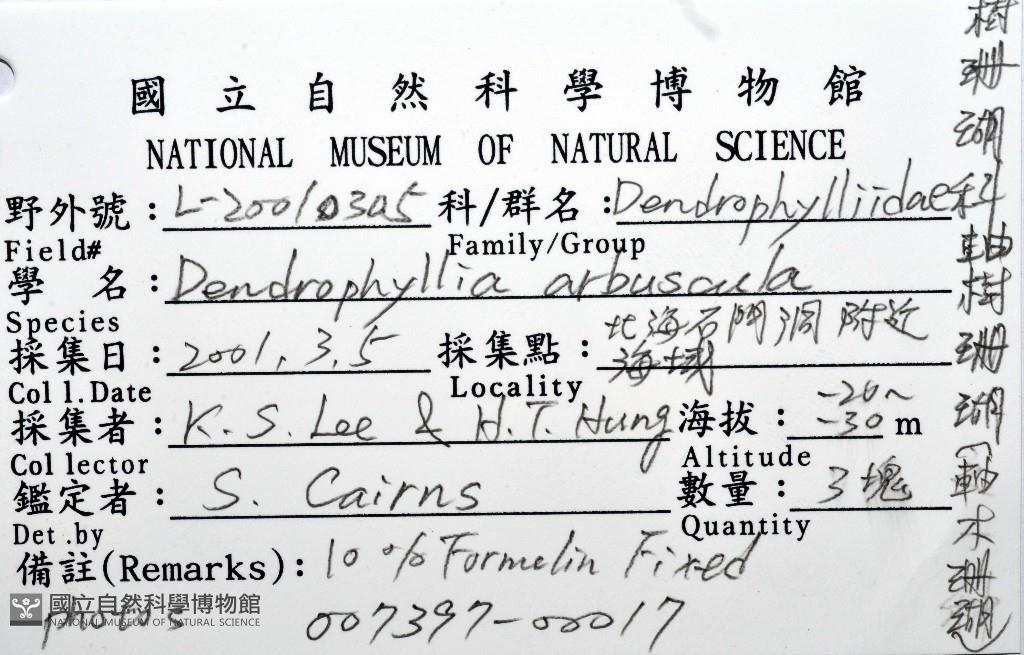 國立自然科學博物館
NATIONAL MUSEUM OF NATURAL SCIENCE
野外號：L-20010305 科/群名：Dendrophylliidae
Field# Family/Group
學 名：Dendrophyllia arbuscula
Species
採集日：2001.3.5 採集點：北海石門洞附近
海域
Coll.Date Locality
採集者：K.S. Lee & H.T. Hung 海拔：-20~
-30 m
Collector Altitude
鑑定者：S. Cairns 數量：3塊
Det.by Quantity
備註(Remarks)：10% Formelin Fixed
photos 007397-00017
國立自然科學博物館
NATIONAL MUSEUM OF NATURAL SCIENCE
樹珊瑚科軸樹珊瑚 軸木珊瑚